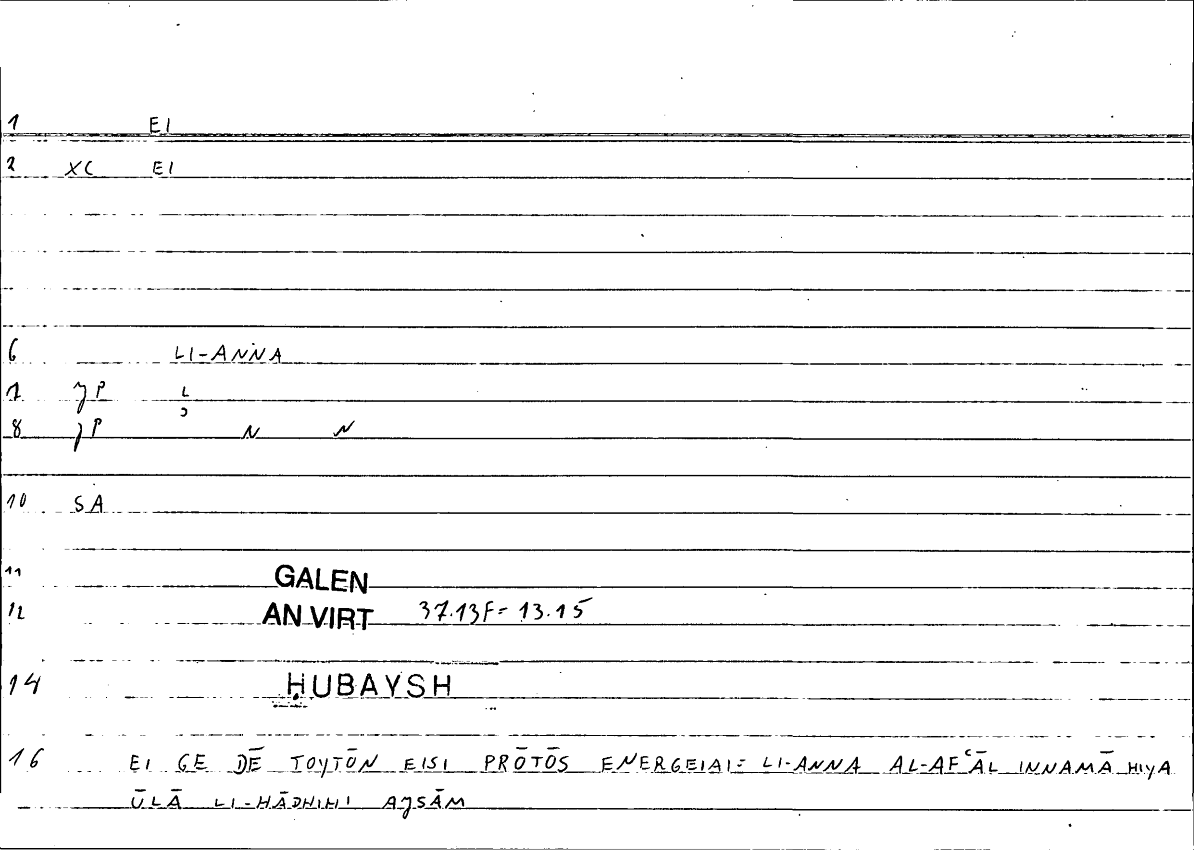 1 EI
2 XC EI
6 LI-ANNA
7 JP L
8 JP N N
10 SA
11 GALEN
12 AN VIRT 37.13F= 13.15
14 ḤUBAYSH
16 EI GE DĒ TOYTŌN EISI PRŌTŌS ENERGEIAI= LI-ANNA AL-AFʿĀL INNAMĀ HIYA
ŪLĀ LI-HĀDHIHI AJSĀM